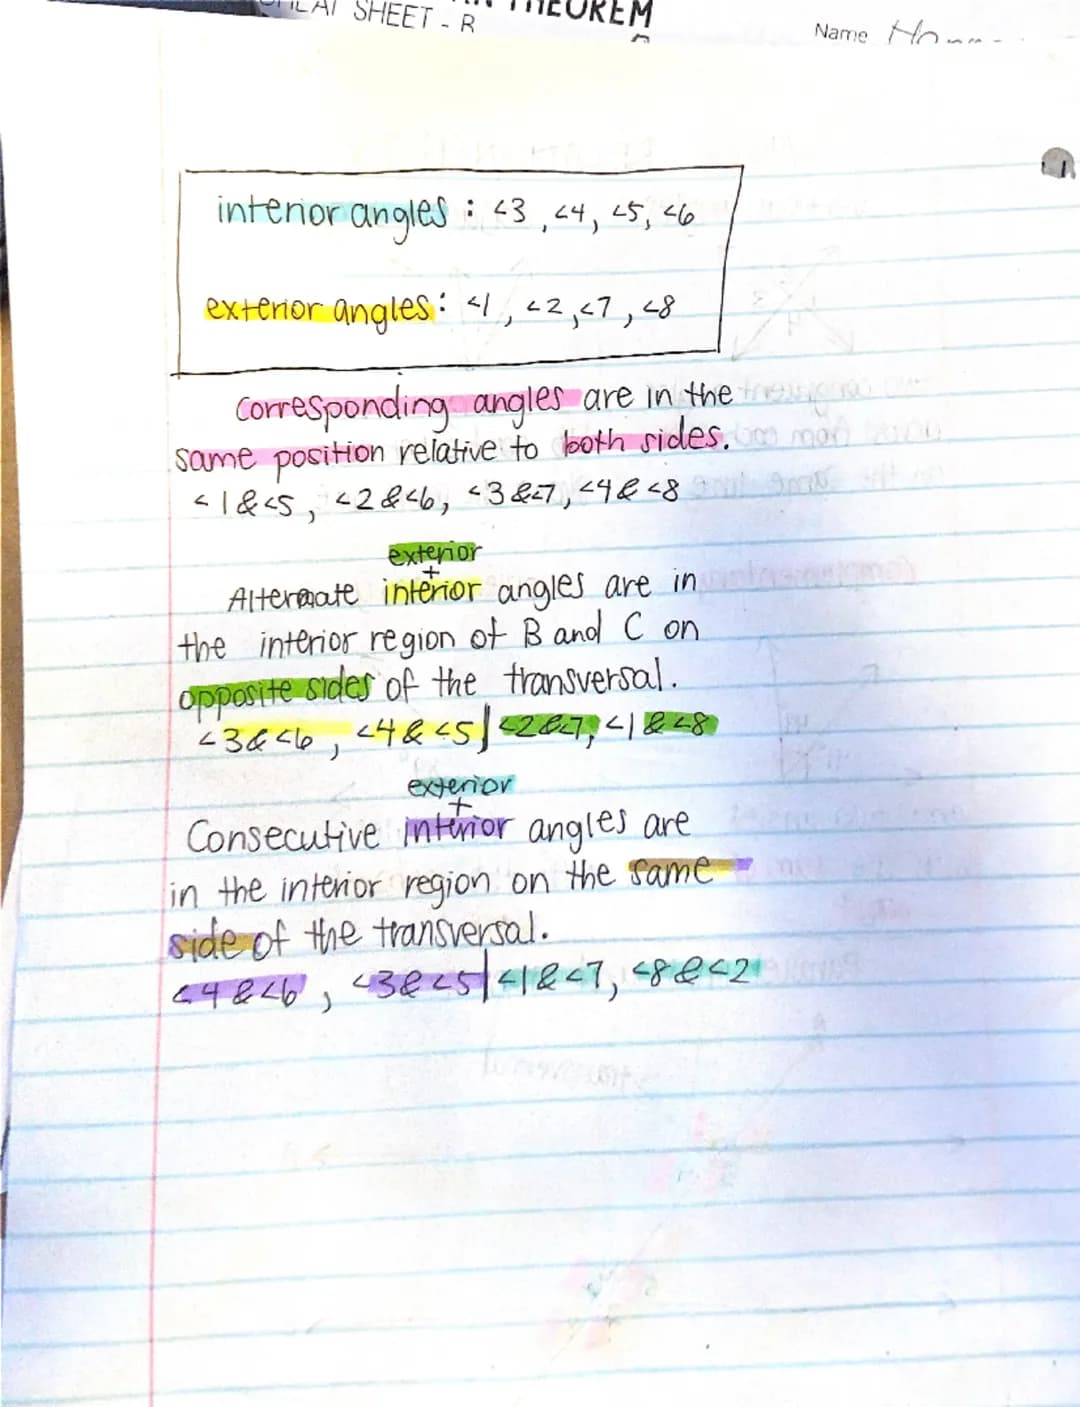 SHEET - R
THEOREM
Name
interior angles : <3, <4, <5, <6
exterior angles: <1, <2, <7, <8
Corresponding angles are in the
same position relative to both sides.
<1&<5, <2&<6, <3&<7, <4&<8
exterior
+
Alternate interior angles are in
the interior region of B and C on
opposite sides of the transversal.
<3&<6, <4&<5|<2&<7, <1&<8
exterior
+
Consecutive interior angles are
in the interior region on the same
side of the transversal.
<4&<6, <3&<5|<1&<7, <8&<2